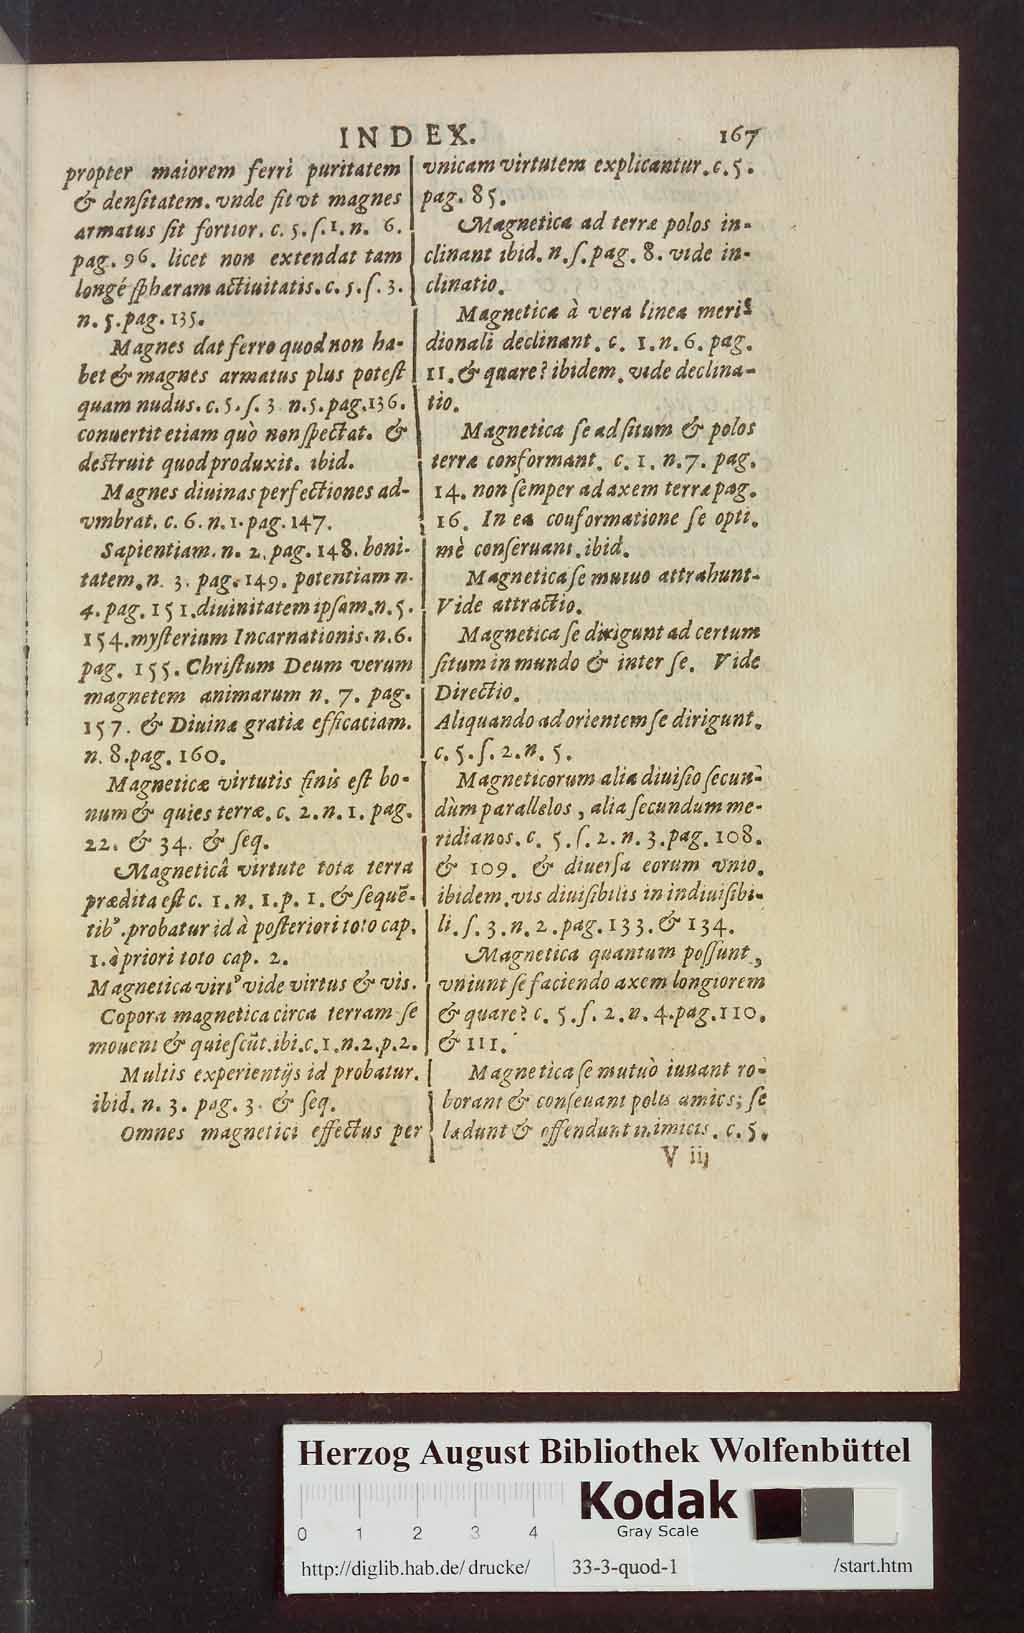 INDEX. 167
propter maiorem ferri puritatem
& denſitatem. vnde fit vt magnes
armatus ſit fortior. c. 5. ſ. 1. n. 6.
pag. 96. licet non extendat tam
longé ſphæram actiuitatis. c. 5. ſ. 3.
n. 5. pag. 135.
Magnes dat ferro quod non ha-
bet & magnes armatus plus poteſt
quam nudus. c. 5. ſ. 3 n. 5. pag. 136.
conuertit etiam quò non ſpectat. &
destruit quod produxit. ibid.
Magnes diuinas perfectiones ad-
vmbrat. c. 6. n. 1. pag. 147.
Sapientiam. n. 2. pag. 148. boni-
tatem. n. 3. pag. 149. potentiam n.
4. pag. 151. diuinitatem ipſam. n. 5.
154. myſterium Incarnationis. n. 6.
pag. 155. Chriſtum Deum verum
magnetem animarum n. 7. pag.
157. & Diuinæ gratiæ efficaciam.
n. 8. pag. 160.
Magneticæ virtutis finis eſt bo-
num & quies terræ. c. 2. n. 1. pag.
22. & 34. & ſeq.
Magneticâ virtute tota terra
prædita eſt c. 1. n. 1. p. 1. & ſequē-
tibꝰ. probatur id à poſteriori toto cap.
1. à priori toto cap. 2.
Magnetica virtꝰ vide virtus & vis.
Copora magnetica circa terram ſe
mouent & quieſcūt. ibi. c. 1. n. 2. p. 2.
Multis experientijs id probatur.
ibid. n. 3. pag. 3. & ſeq.
Omnes magnetici effectus per
vnicam virtutem explicantur. c. 5.
pag. 85.
Magnetica ad terræ polos in-
clinant ibid. n. ſ. pag. 8. vide in-
clinatio.
Magnetica à vera linea meri-
dionali declinant. c. 1. n. 6. pag.
11. & quare? ibidem. vide declina-
tio.
Magnetica ſe ad ſitum & polos
terræ conformant. c. 1. n. 7. pag.
14. non ſemper ad axem terræ pag.
16. In ea couformatione ſe opti.
mè conſeruant. ibid.
Magnetica ſe mutuo attrahunt.
Vide attractio.
Magnetica ſe dirigunt ad certum
ſitum in mundo & inter ſe. Vide
Directio.
Aliquando ad orientem ſe dirigunt.
c. 5. ſ. 2. n. 5.
Magneticorum alia diuiſio ſecun-
dùm parallelos, alia ſecundum me-
ridianos. c. 5. ſ. 2. n. 3. pag. 108.
& 109. & diuerſa eorum vnio.
ibidem. vis diuiſibilis in indiuiſibi-
li. ſ. 3. n. 2. pag. 133. & 134.
Magnetica quantum poſſunt,
vniunt ſe faciendo axem longiorem
& quare? c. 5. ſ. 2. n. 4. pag. 110.
& 111.
Magnetica ſe mutuò iuuant ro-
borant & conſeuant polis amics; ſe
lædunt & offendunt inimicis. c. 5.
V iij
Herzog August Bibliothek Wolfenbüttel
Kodak
Gray Scale
0 1 2 3 4
http://diglib.hab.de/drucke/ 33-3-quod-1 /start.htm